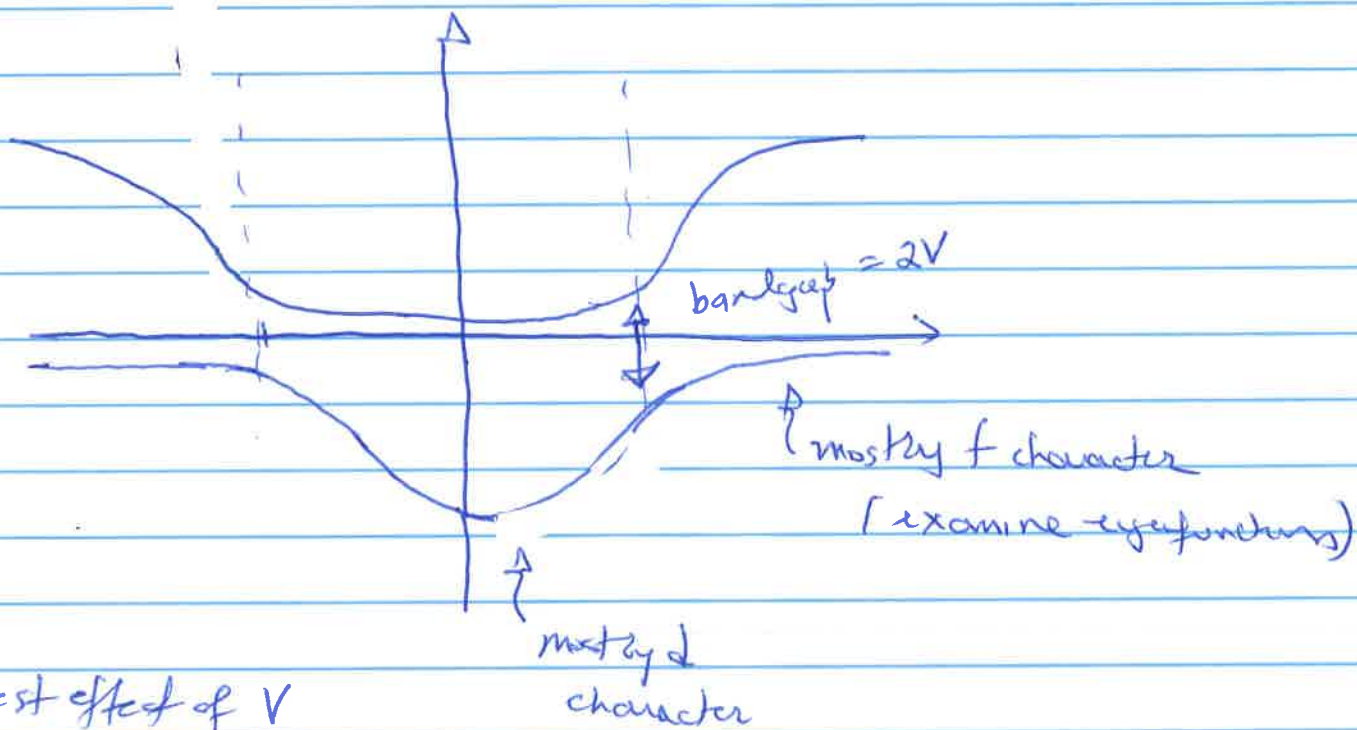 bandgap = 2V
mostly f character
(examine eigenfunctions)
mostly d
character
est effect of V